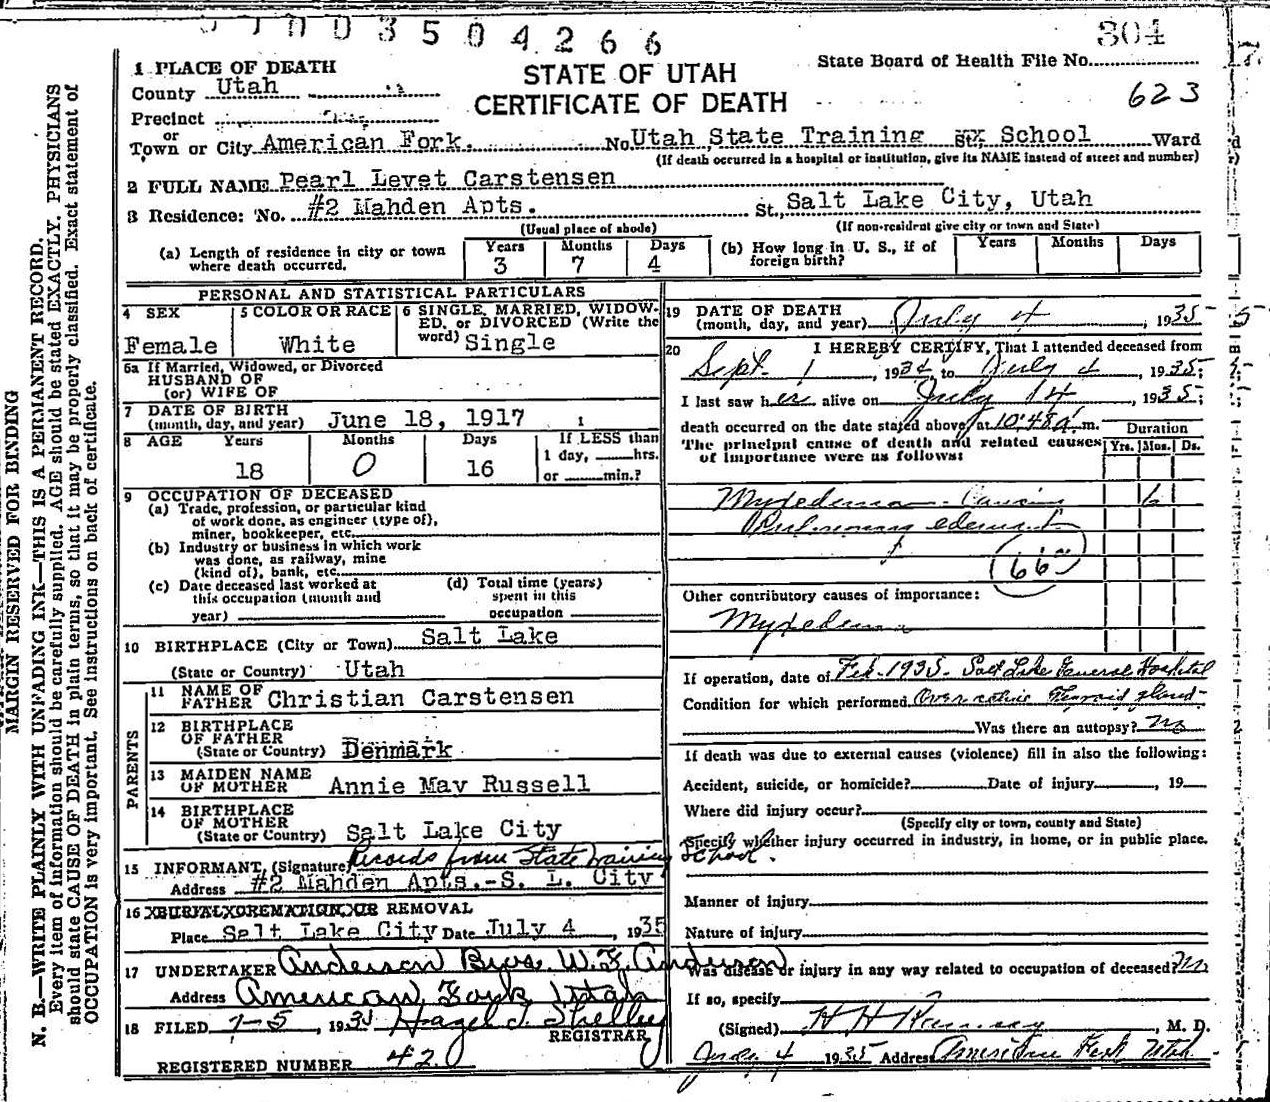 3 5 0 4 2 6 6
304
1 PLACE OF DEATH
STATE OF UTAH
CERTIFICATE OF DEATH
State Board of Health File No.
623
County Utah
Precinct
or
Town or City American Fork. No Utah State Training St. School Ward
(If death occurred in a hospital or institution, give its NAME instead of street and number)
2 FULL NAME Pearl Levet Carstensen
3 Residence: No. #2 Mahden Apts. St., Salt Lake City, Utah
(Usual place of abode) (If non-resident give city or town and State)
(a) Length of residence in city or town where death occurred. Years 3 Months 7 Days 4
(b) How long in U. S., if of foreign birth? Years Months Days
PERSONAL AND STATISTICAL PARTICULARS
4 SEX Female
5 COLOR OR RACE White
6 SINGLE, MARRIED, WIDOWED, or DIVORCED (Write the word) Single
6a If Married, Widowed, or Divorced
HUSBAND OF
(or) WIFE OF
7 DATE OF BIRTH
(month, day, and year) June 18, 1917
8 AGE Years 18 Months 0 Days 16 If LESS than 1 day, hrs. or min.?
9 OCCUPATION OF DECEASED
(a) Trade, profession, or particular kind
of work done, as engineer (type of),
miner, bookkeeper, etc.
(b) Industry or business in which work
was done, as railway, mine
(kind of), bank, etc.
(c) Date deceased last worked at
this occupation (month and
year)
(d) Total time (years)
spent in this
occupation
10 BIRTHPLACE (City or Town) Salt Lake
(State or Country) Utah
PARENTS
11 NAME OF FATHER Christian Carstensen
12 BIRTHPLACE OF FATHER
(State or Country) Denmark
13 MAIDEN NAME OF MOTHER Annie May Russell
14 BIRTHPLACE OF MOTHER
(State or Country) Salt Lake City
15 INFORMANT, (Signature) Records from State Training School.
Address #2 Mahden Apts.-S. L. City
16 BURIAL, CREMATION, OR REMOVAL
Place Salt Lake City Date July 4, 1935
17 UNDERTAKER Anderson Bros. W. F. Anderson
Address American Fork Utah
18 FILED 7-5, 1935 Hazel J. Shelley
REGISTRAR
REGISTERED NUMBER 42
19 DATE OF DEATH
(month, day, and year) July 4, 1935
20 I HEREBY CERTIFY, That I attended deceased from
Sept. 1, 1934, to July 4, 1935;
I last saw her alive on July 4, 1935;
death occurred on the date stated above, at 10:48 a. m.
The principal cause of death and related causes
of importance were as follows:
Duration
Yrs. Mos. Ds.
Myxedema - Causing 6
Pulmonary edema
66
Other contributory causes of importance:
Myxedema
If operation, date of Feb. 1935. Salt Lake General Hospital
Condition for which performed Over active Thyroid gland-
Was there an autopsy? No
If death was due to external causes (violence) fill in also the following:
Accident, suicide, or homicide? Date of injury, 19
Where did injury occur?
(Specify city or town, county and State)
Specify whether injury occurred in industry, in home, or in public place.
Manner of injury
Nature of injury
Was disease or injury in any way related to occupation of deceased? No
If so, specify
(Signed) H H Ramsey, M. D.
July 4 1935 Address American Fork Utah
MARGIN RESERVED FOR BINDING
N. B.—WRITE PLAINLY WITH UNFADING INK—THIS IS A PERMANENT RECORD.
Every item of information should be carefully supplied. AGE should be stated EXACTLY. PHYSICIANS
should state CAUSE OF DEATH in plain terms, so that it may be properly classified. Exact statement of
OCCUPATION is very important. See instructions on back of certificate.